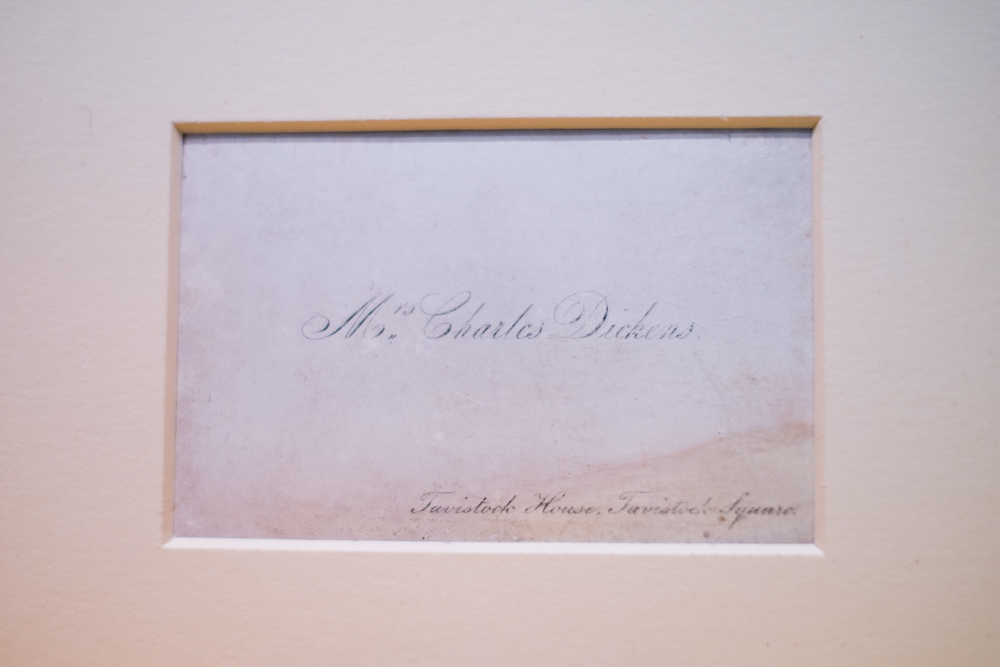 Mrs. Charles Dickens.
Tavistock House, Tavistock Square.